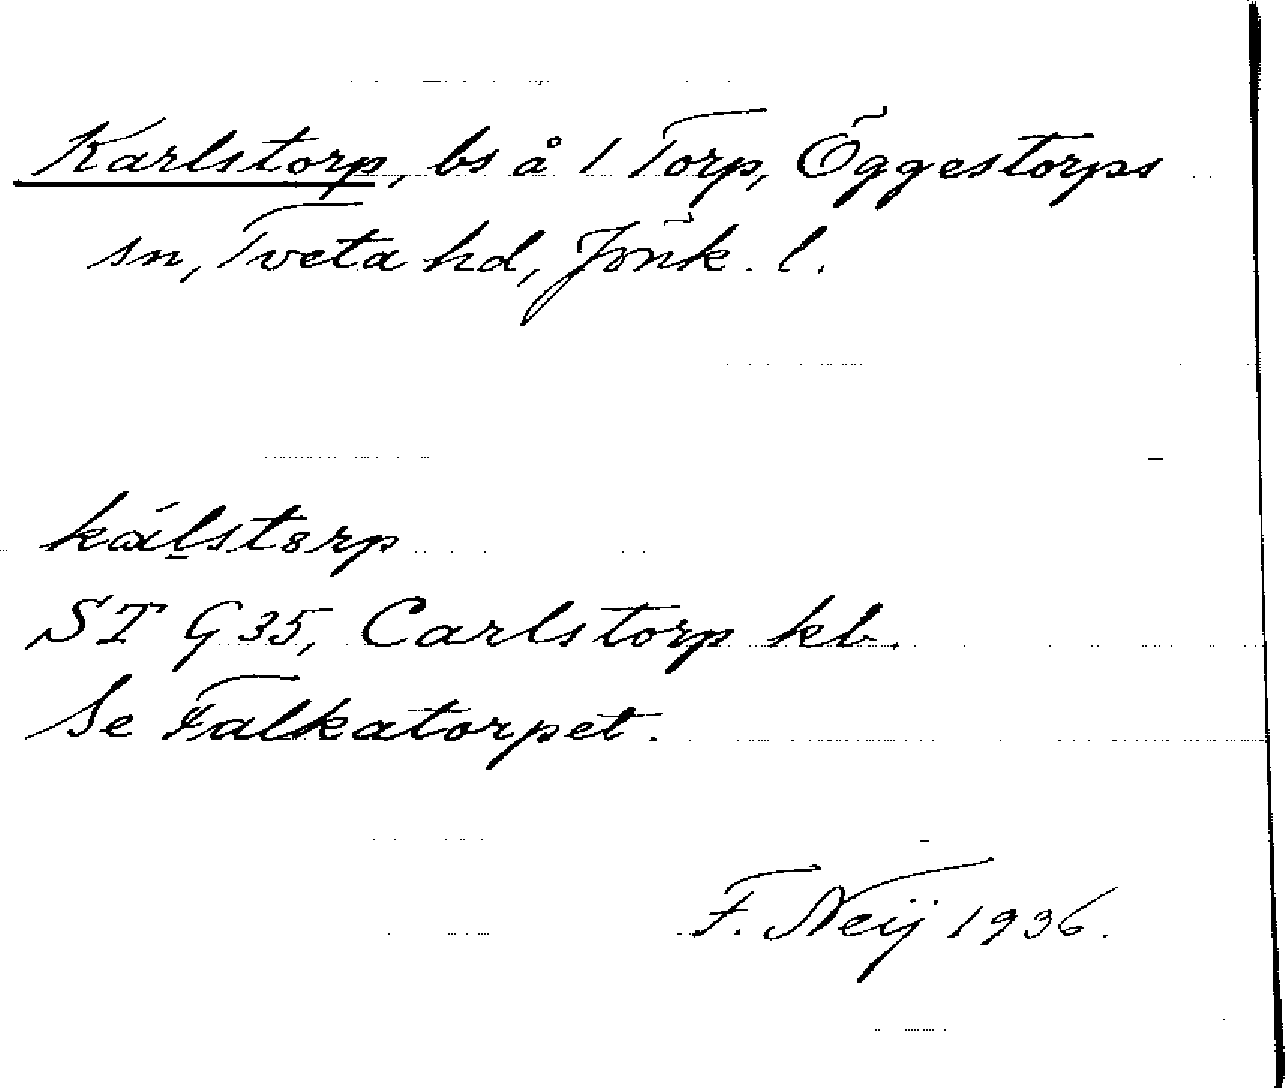 Karlstorp, bs å 1 Torp, Öggestorps
sn, Tveta hd, Jönk. l.
kálstorp
ST G35, Carlstorp kb.
Se Falkatorpet.
F. Neij 1936.